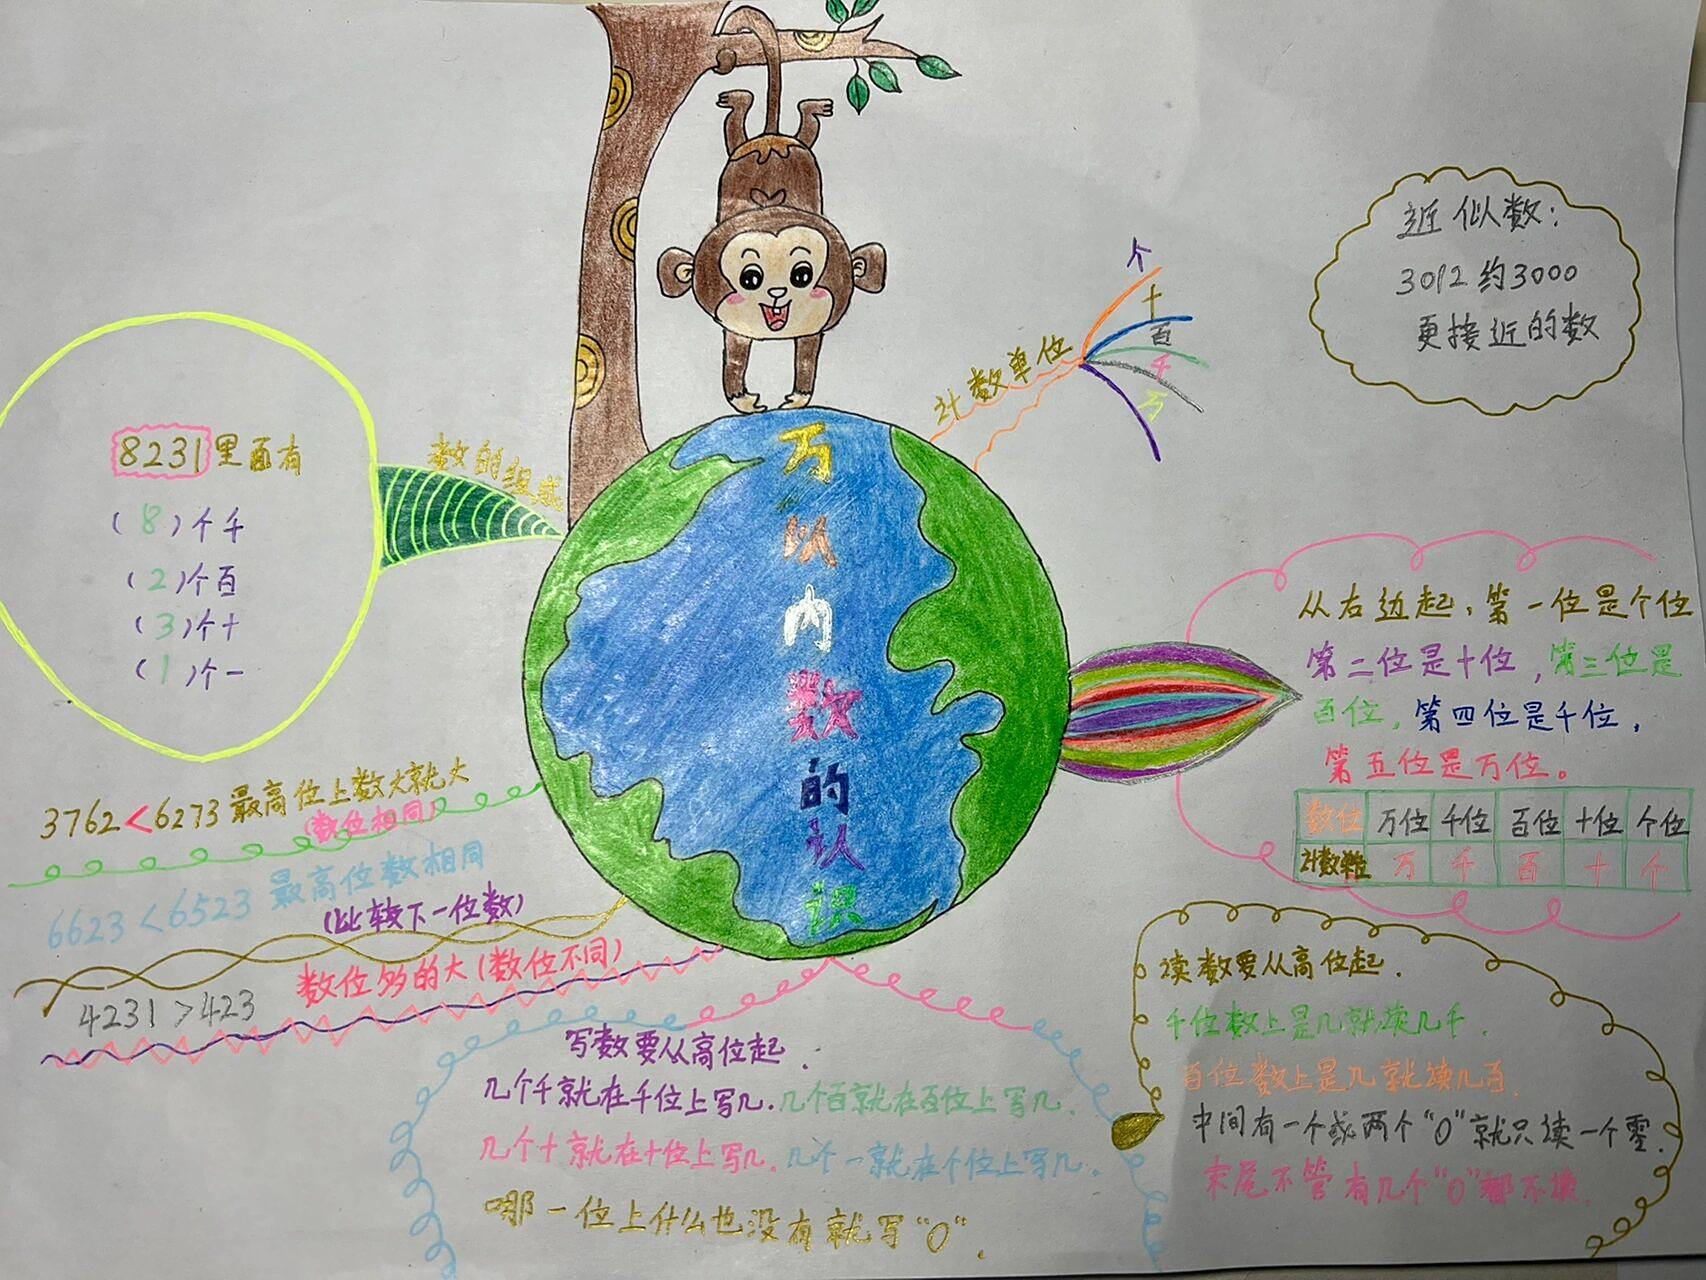 万以内数的认识
数的组成
8231里面有
(8)个千
(2)个百
(3)个十
(1)个一
计数单位
个
十
百
千
万
近似数:
3012约3000
更接近的数
从右边起,第一位是个位
第二位是十位,第三位是
百位,第四位是千位,
第五位是万位。
数位 万位 千位 百位 十位 个位
计数单位 万 千 百 十 个
3762<6273最高位上数大就大
(数位相同)
6623<6523 最高位数相同
(比较下一位数)
数位多的大(数位不同)
4231>423
写数要从高位起.
几个千就在千位上写几.几个百就在百位上写几.
几个十就在十位上写几.几个一就在个位上写几.
哪一位上什么也没有就写“0”.
读数要从高位起.
千位数上是几就读几千.
百位数上是几就读几百.
中间有一个或两个“0”就只读一个零.
末尾不管有几个“0”都不读.